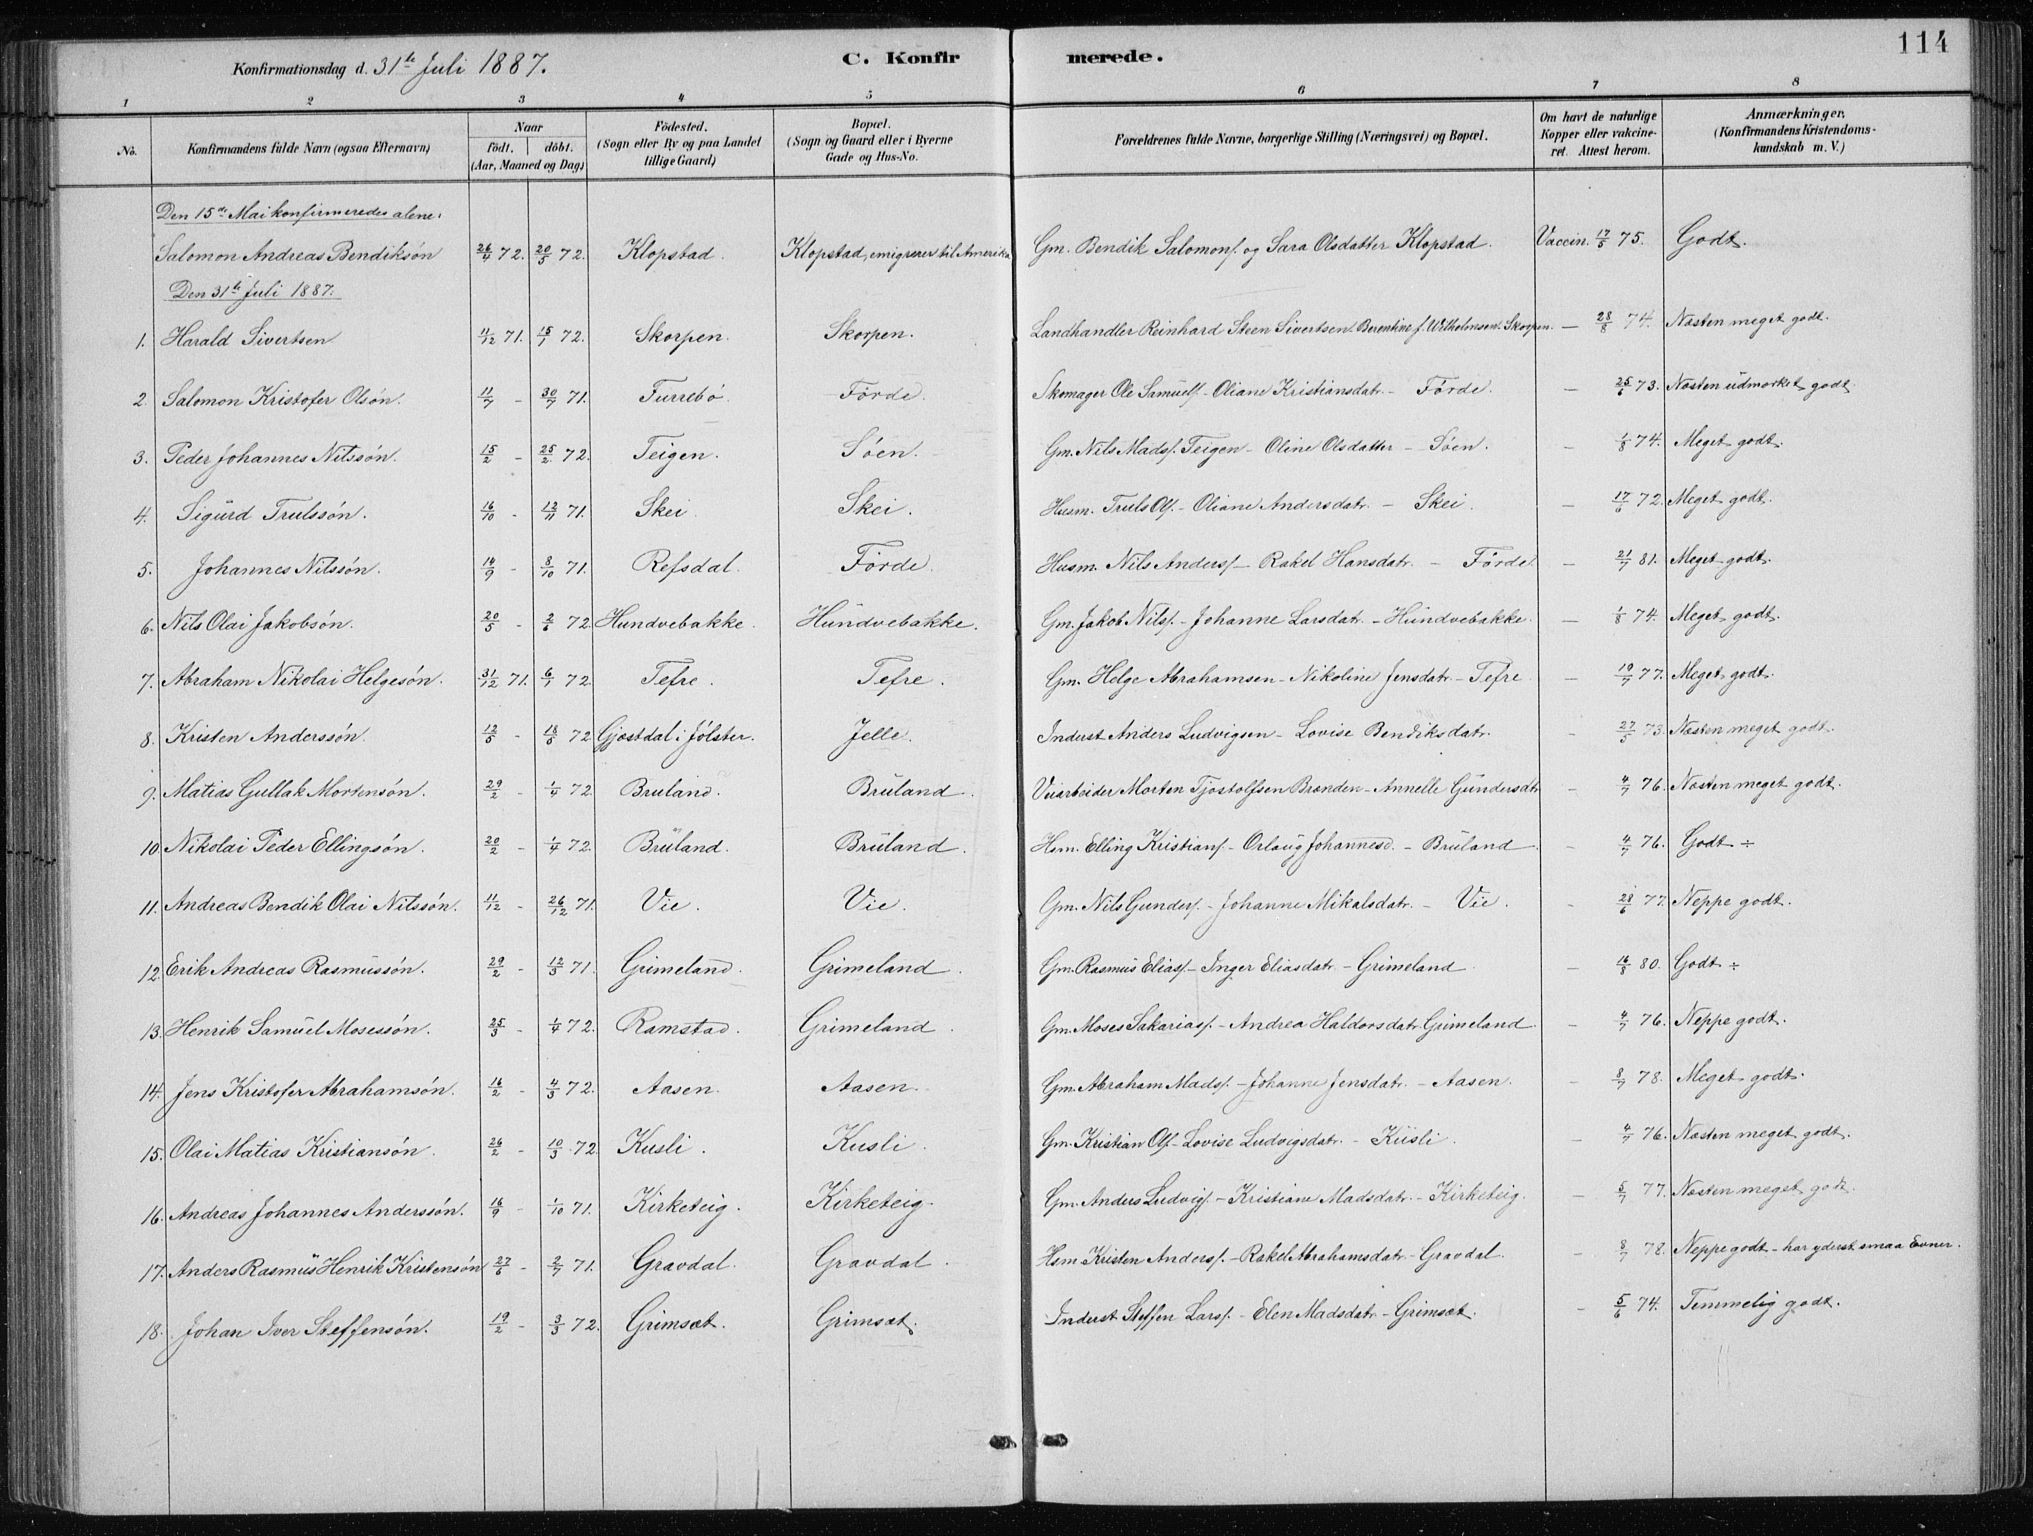 114
Konfirmationsdag d. 31te Juli 1887.
C. Konfirmerede.
1 2 3 4 5 6 7 8
No.
Konfirmandens fulde Navn (ogsaa Efternavn)
Naar
födt. döbt.
(Aar, Maaned og Dag)
Födested.
(Sogn eller By og paa Landet
tillige Gaard)
Bopæl.
(Sogn og Gaard eller i Byerne
Gade og Hus-No.
Forældrenes fulde Navne, borgerlige Stilling (Næringsvei) og Bopæl.
Om havt de naturlige
Kopper eller vakcine-
ret. Attest herom.
Anmærkninger.
(Konfirmandens Kristendoms-
kundskab m. V.)
Den 15de Mai konfirmeredes alene:
Salomon Andreas Bendiksön 26/4 72. 20/5 72. Klopstad. Klopstad, emigrerer til Amerika Gm. Bendik Salomons. og Sara Olsdatter Klopstad. Vaccin. 17/5 75. Godt.
Den 31te Juli 1887.
1. Harald Sivertsen 11/12 71. 15/1 72. Skorpen. Skorpen. Landhandler Reinhard Steen Sivertsen Berentine f. Wilhelmsen. Skorpen. — 28/8 74. Næsten meget godt.
2. Salomon Kristofer Olsön. 11/7 - 30/7 71. Furrebö. Förde. Skomager Ole Samuels. - Oliane Kristiansdatr. - Förde. — 25/6 73. Næsten udmærket godt.
3. Peder Johannes Nilssön. 15/2 - 25/2 72. Teigen. Söen. Gm. Nils Mads. Teigen - Oline Olsdatter - Söen. — 1/8 74. Meget godt.
4. Sigurd Trulssön. 16/10 - 12/11 71. Skei. Skei. Husm. Truls Ols. - Oliane Andersdatr. - Skei. — 17/6 72. Meget godt.
5. Johannes Nilssön. 14/9 - 8/10 71. Refsdal. Förde. Husm. Nils Anders. - Rakel Hansdatr. - Förde. — 21/7 81. Meget godt.
6. Nils Olai Jakobsön. 20/5 - 2/6 72. Hundvebakke. Hundvebakke. Gm. Jakob Nils. - Johanne Larsdatr. - Hundvebakke. — 1/8 74. Meget godt.
7. Abraham Nikolai Helgesön. 31/12 71. 6/1 72. Tefre. Tefre. Gm. Helge Abrahamsen - Nikoline Jensdatr. - Tefre — 19/7 77. Meget godt.
8. Kristen Anderssön. 12/5 - 18/6 72 Gjæstdal i Jölster. Jelle. Inderst Anders Ludvigsen - Lovise Bendiksdatr. - 27/5 73. Næsten meget godt.
9. Matias Gullak Mortensön. 29/2 - 1/4 72 Bruland. Bruland. Veiarbeider Morten Tjostolfsen Brænden - Annelle Gundersdtr - 4/7 76. Næsten meget godt.
10. Nikolai Peder Ellingsön. 20/2 - 1/4 72. Bruland. Bruland. Hsm. Elling Kristians. - Orlaug Johannesd. - Bruland. - 4/7 76. Godt ÷
11. Andreas Bendik Olai Nilssön. 11/12 - 26/12 71. Vie. Vie. Gm. Nils Gunders. - Johanne Mikalsdatr. - Vie. - 28/6 77. Neppe godt.
12. Erik Andreas Rasmussön. 29/2 - 12/3 71. Grimeland. Grimeland. Gm. Rasmus Elias. - Inger Eliasdatr. - Grimeland - 16/8 80. Godt ÷
13. Henrik Samuel Mosessön. 25/3 - 1/4 72. Ramstad. Grimeland. Gm. Moses Sakarias. - Andrea Haldorsdatr. Grimeland. - 4/7 76. Neppe godt.
14. Jens Kristofer Abrahamsön. 16/2 - 4/3 72. Aasen. Aasen. Gm. Abraham Mads. - Johanne Jensdatr. - Aasen. - 8/7 78. Meget godt.
15. Olai Matias Kristiansön. 26/2 - 10/3 72. Kusli. Kusli. Gm. Kristian Ols. - Lovise Ludvigsdatr. - Kusli. - 4/7 76. Næsten meget godt.
16. Andreas Johannes Anderssön. 16/9 - 1/10 71. Kirketeig. Kirketeig. Gm. Anders Ludvigs. - Kristiane Madsdatr. - Kirketeig. - 5/7 77. Næsten meget godt.
17. Anders Rasmus Henrik Kristensön 27/6 - 2/7 71. Gravdal. Gravdal. Hsm Kristen Anders. - Rakel Abrahamsdatr. - Gravdal. - 8/7 78. Neppe godt - har yderst smaa Evner.
18. Johan Iver Steffensön. 19/2 - 3/3 72. Grimsæt. Grimsæt. Inderst Steffen Lars. - Elen Madsdatr. - Grimsæt. - 5/6 74. Temmelig godt.